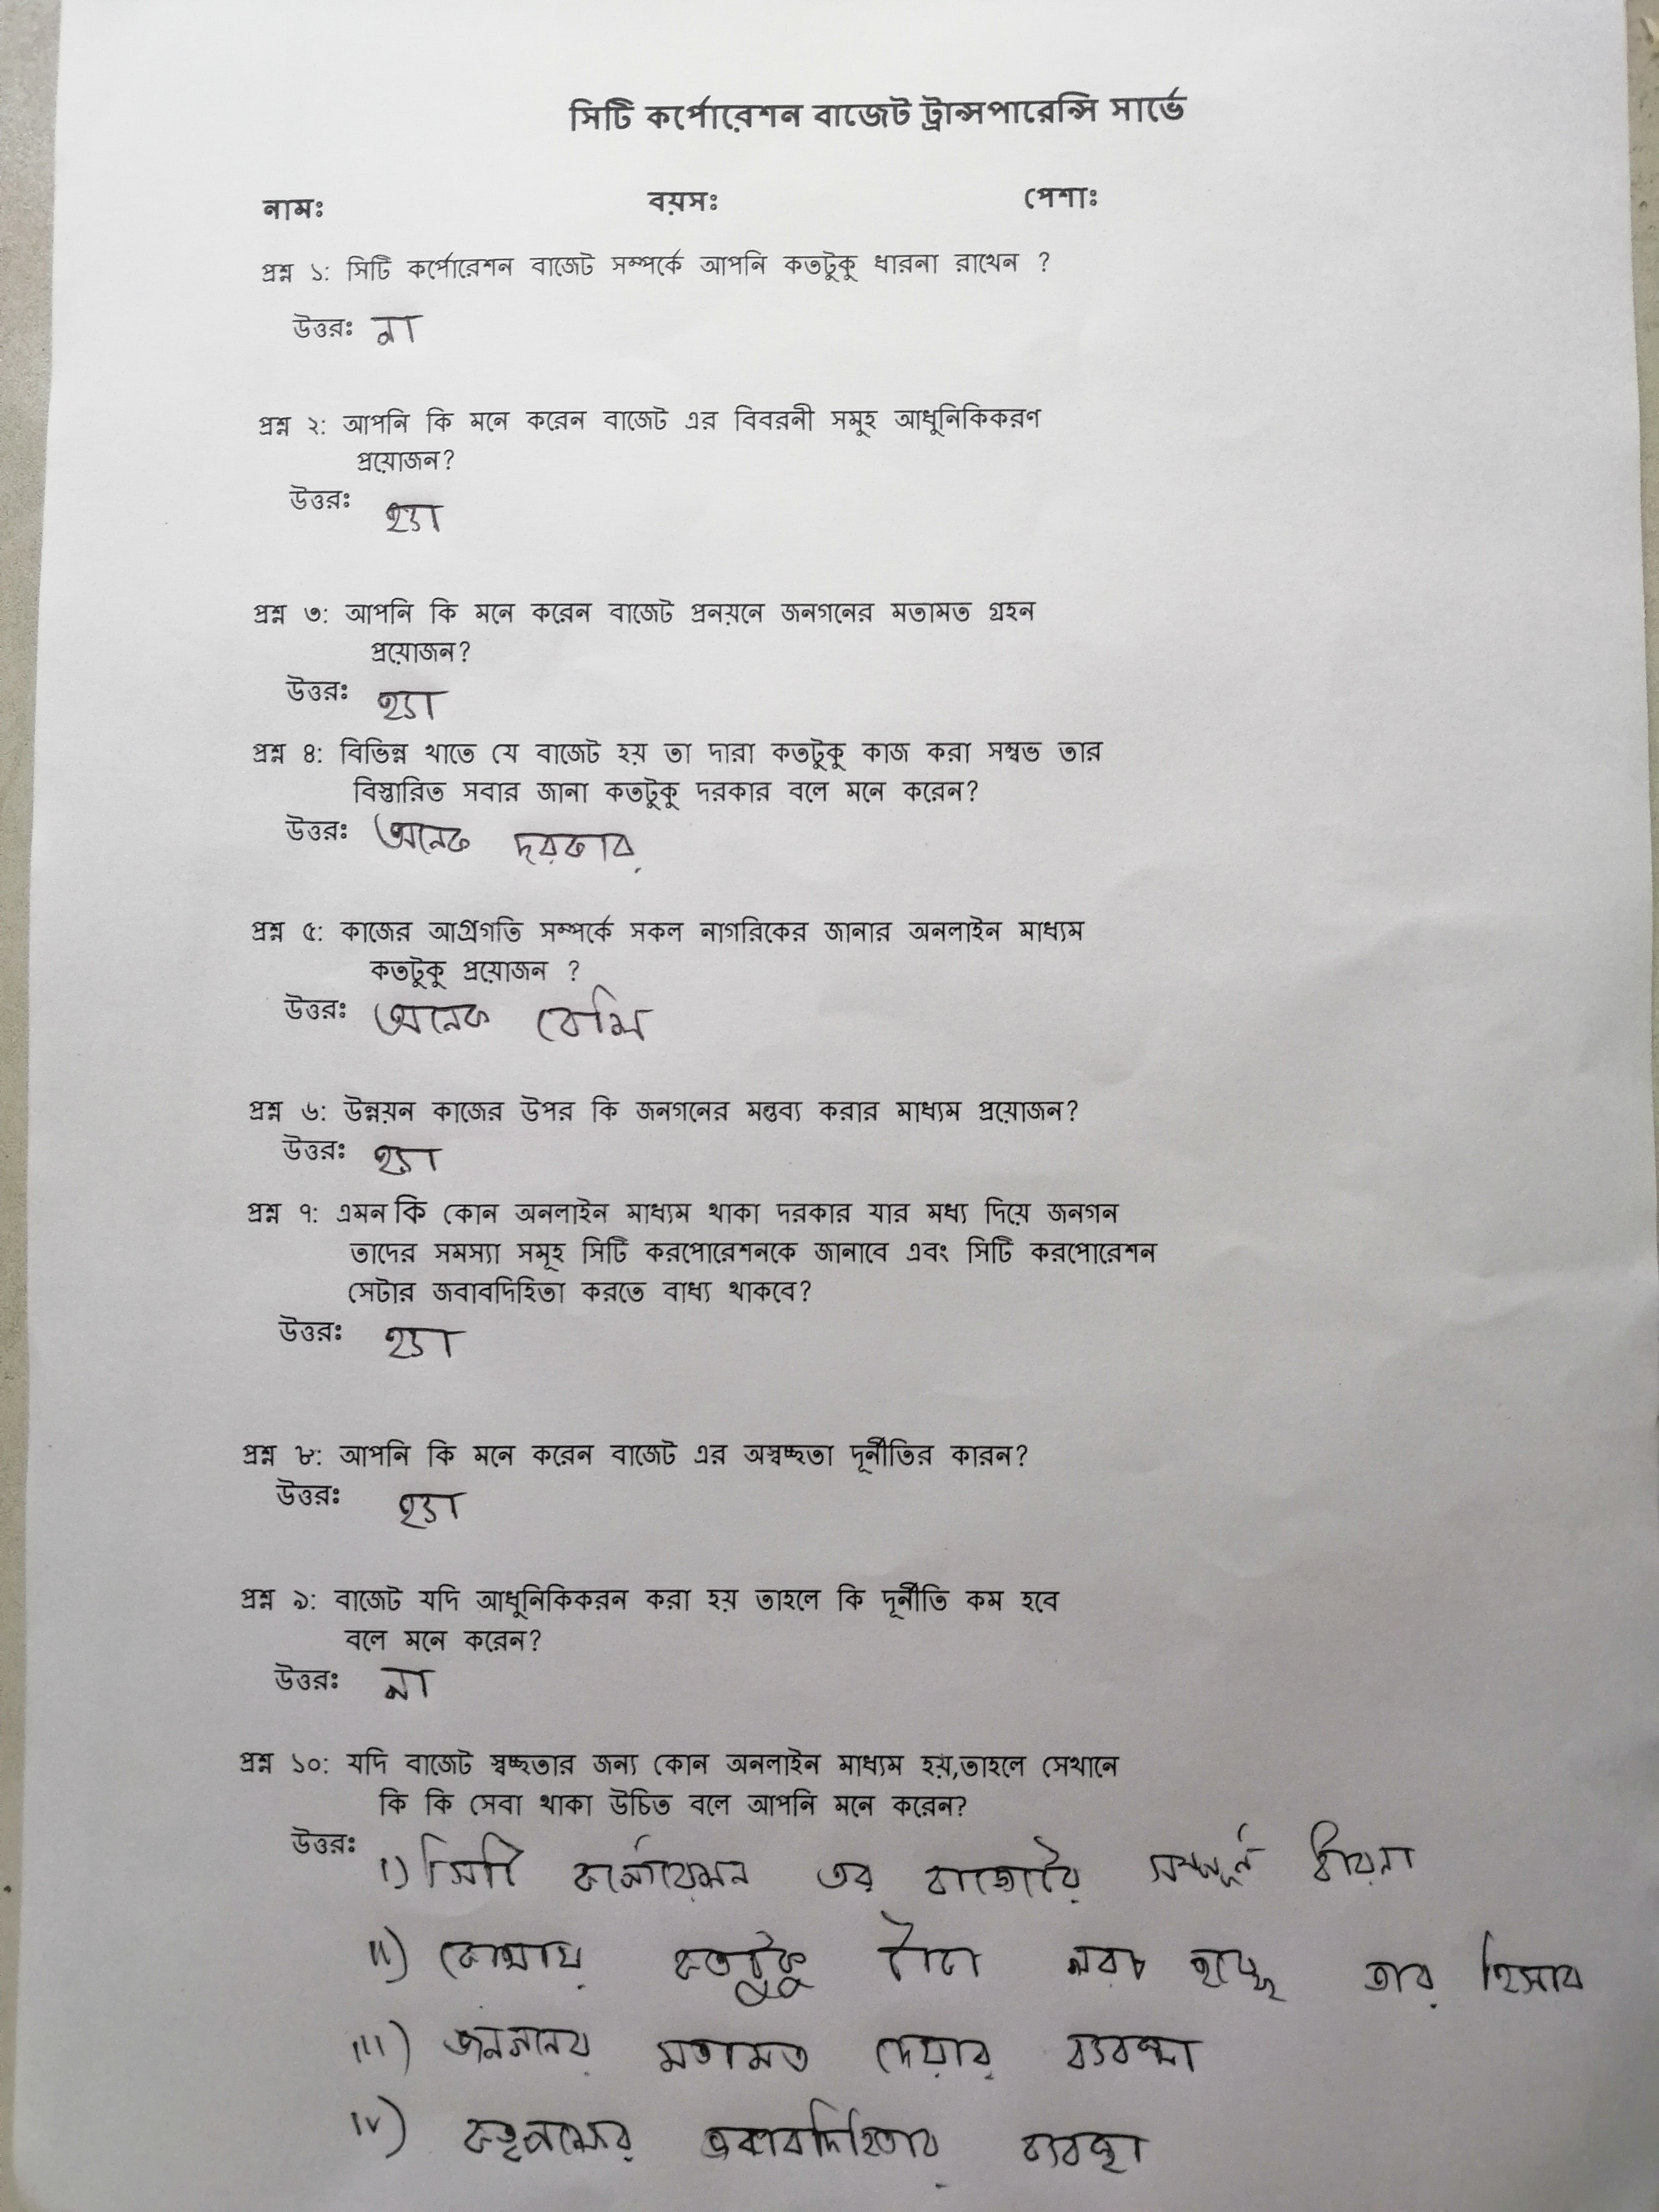 সিটি কর্পোরেশন বাজেট ট্রান্সপারেন্সি সার্ভে
নামঃ বয়সঃ পেশাঃ
প্রশ্ন ১: সিটি কর্পোরেশন বাজেট সম্পর্কে আপনি কতটুকু ধারনা রাখেন ?
উত্তরঃ না
প্রশ্ন ২: আপনি কি মনে করেন বাজেট এর বিবরনী সমুহ আধুনিকিকরণ
প্রয়োজন?
উত্তরঃ হ্যা
প্রশ্ন ৩: আপনি কি মনে করেন বাজেট প্রনয়নে জনগনের মতামত গ্রহন
প্রয়োজন?
উত্তরঃ হ্যা
প্রশ্ন ৪: বিভিন্ন খাতে যে বাজেট হয় তা দারা কতটুকু কাজ করা সম্বভ তার
বিস্তারিত সবার জানা কতটুকু দরকার বলে মনে করেন?
উত্তরঃ অনেক দরকার
প্রশ্ন ৫: কাজের আগ্রগতি সম্পর্কে সকল নাগরিকের জানার অনলাইন মাধ্যম
কতটুকু প্রয়োজন ?
উত্তরঃ অনেক বেশি
প্রশ্ন ৬: উন্নয়ন কাজের উপর কি জনগনের মন্তব্য করার মাধ্যম প্রয়োজন?
উত্তরঃ হ্যা
প্রশ্ন ৭: এমন কি কোন অনলাইন মাধ্যম থাকা দরকার যার মধ্য দিয়ে জনগন
তাদের সমস্যা সমূহ সিটি করপোরেশনকে জানাবে এবং সিটি করপোরেশন
সেটার জবাবদিহিতা করতে বাধ্য থাকবে?
উত্তরঃ হ্যা
প্রশ্ন ৮: আপনি কি মনে করেন বাজেট এর অস্বচ্ছতা দূর্নীতির কারন?
উত্তরঃ হ্যা
প্রশ্ন ৯: বাজেট যদি আধুনিকিকরন করা হয় তাহলে কি দূর্নীতি কম হবে
বলে মনে করেন?
উত্তরঃ না
প্রশ্ন ১০: যদি বাজেট স্বচ্ছতার জন্য কোন অনলাইন মাধ্যম হয়,তাহলে সেখানে
কি কি সেবা থাকা উচিত বলে আপনি মনে করেন?
উত্তরঃ
i) সিটি কর্পোরেশন এর বাজেটের সম্পূর্ন
ii) কোথায় কতটুকু টাকা খরচ হচ্ছে তার হিসাব
iii) জনগনের মতামত দেয়ার ব্যবস্থা
iv) কতৃপক্ষের জবাবদিহিতার ব্যবস্থা